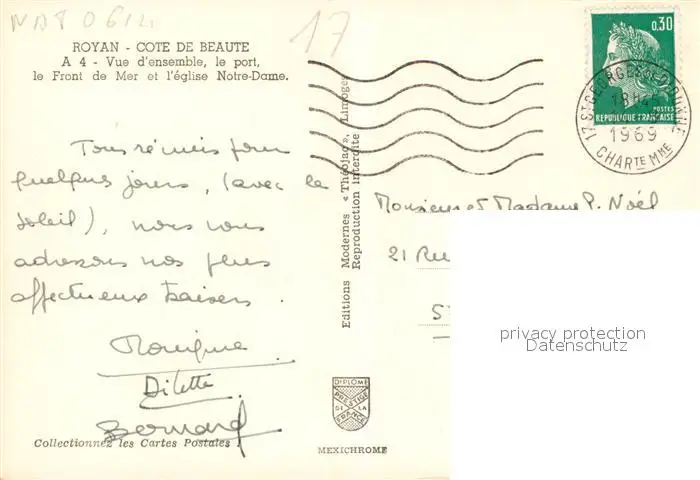 NA8 0614
17
ROYAN - COTE DE BEAUTE
A 4 - Vue d'ensemble, le port,
le Front de Mer et l'église Notre-Dame.
Tous réunis pour
quelques jours, (avec le
soleil), nous vous
adressons nos plus
affectueux baisers.
Monique
Bernard
Collectionnez les Cartes Postales !
Editions Modernes « Théojac », Limoges
Reproduction interdite
DIPLOME
PRESTIGE
DE LA
FRANCE
MEXICHROME
0,30
POSTES
REPUBLIQUE FRANÇAISE
17 ST GEORGES-DE-DIDONNE
1969
CHARTE MME
Monsieur et Madame P. Noël
21 Ru
5
privacy protection
Datenschutz